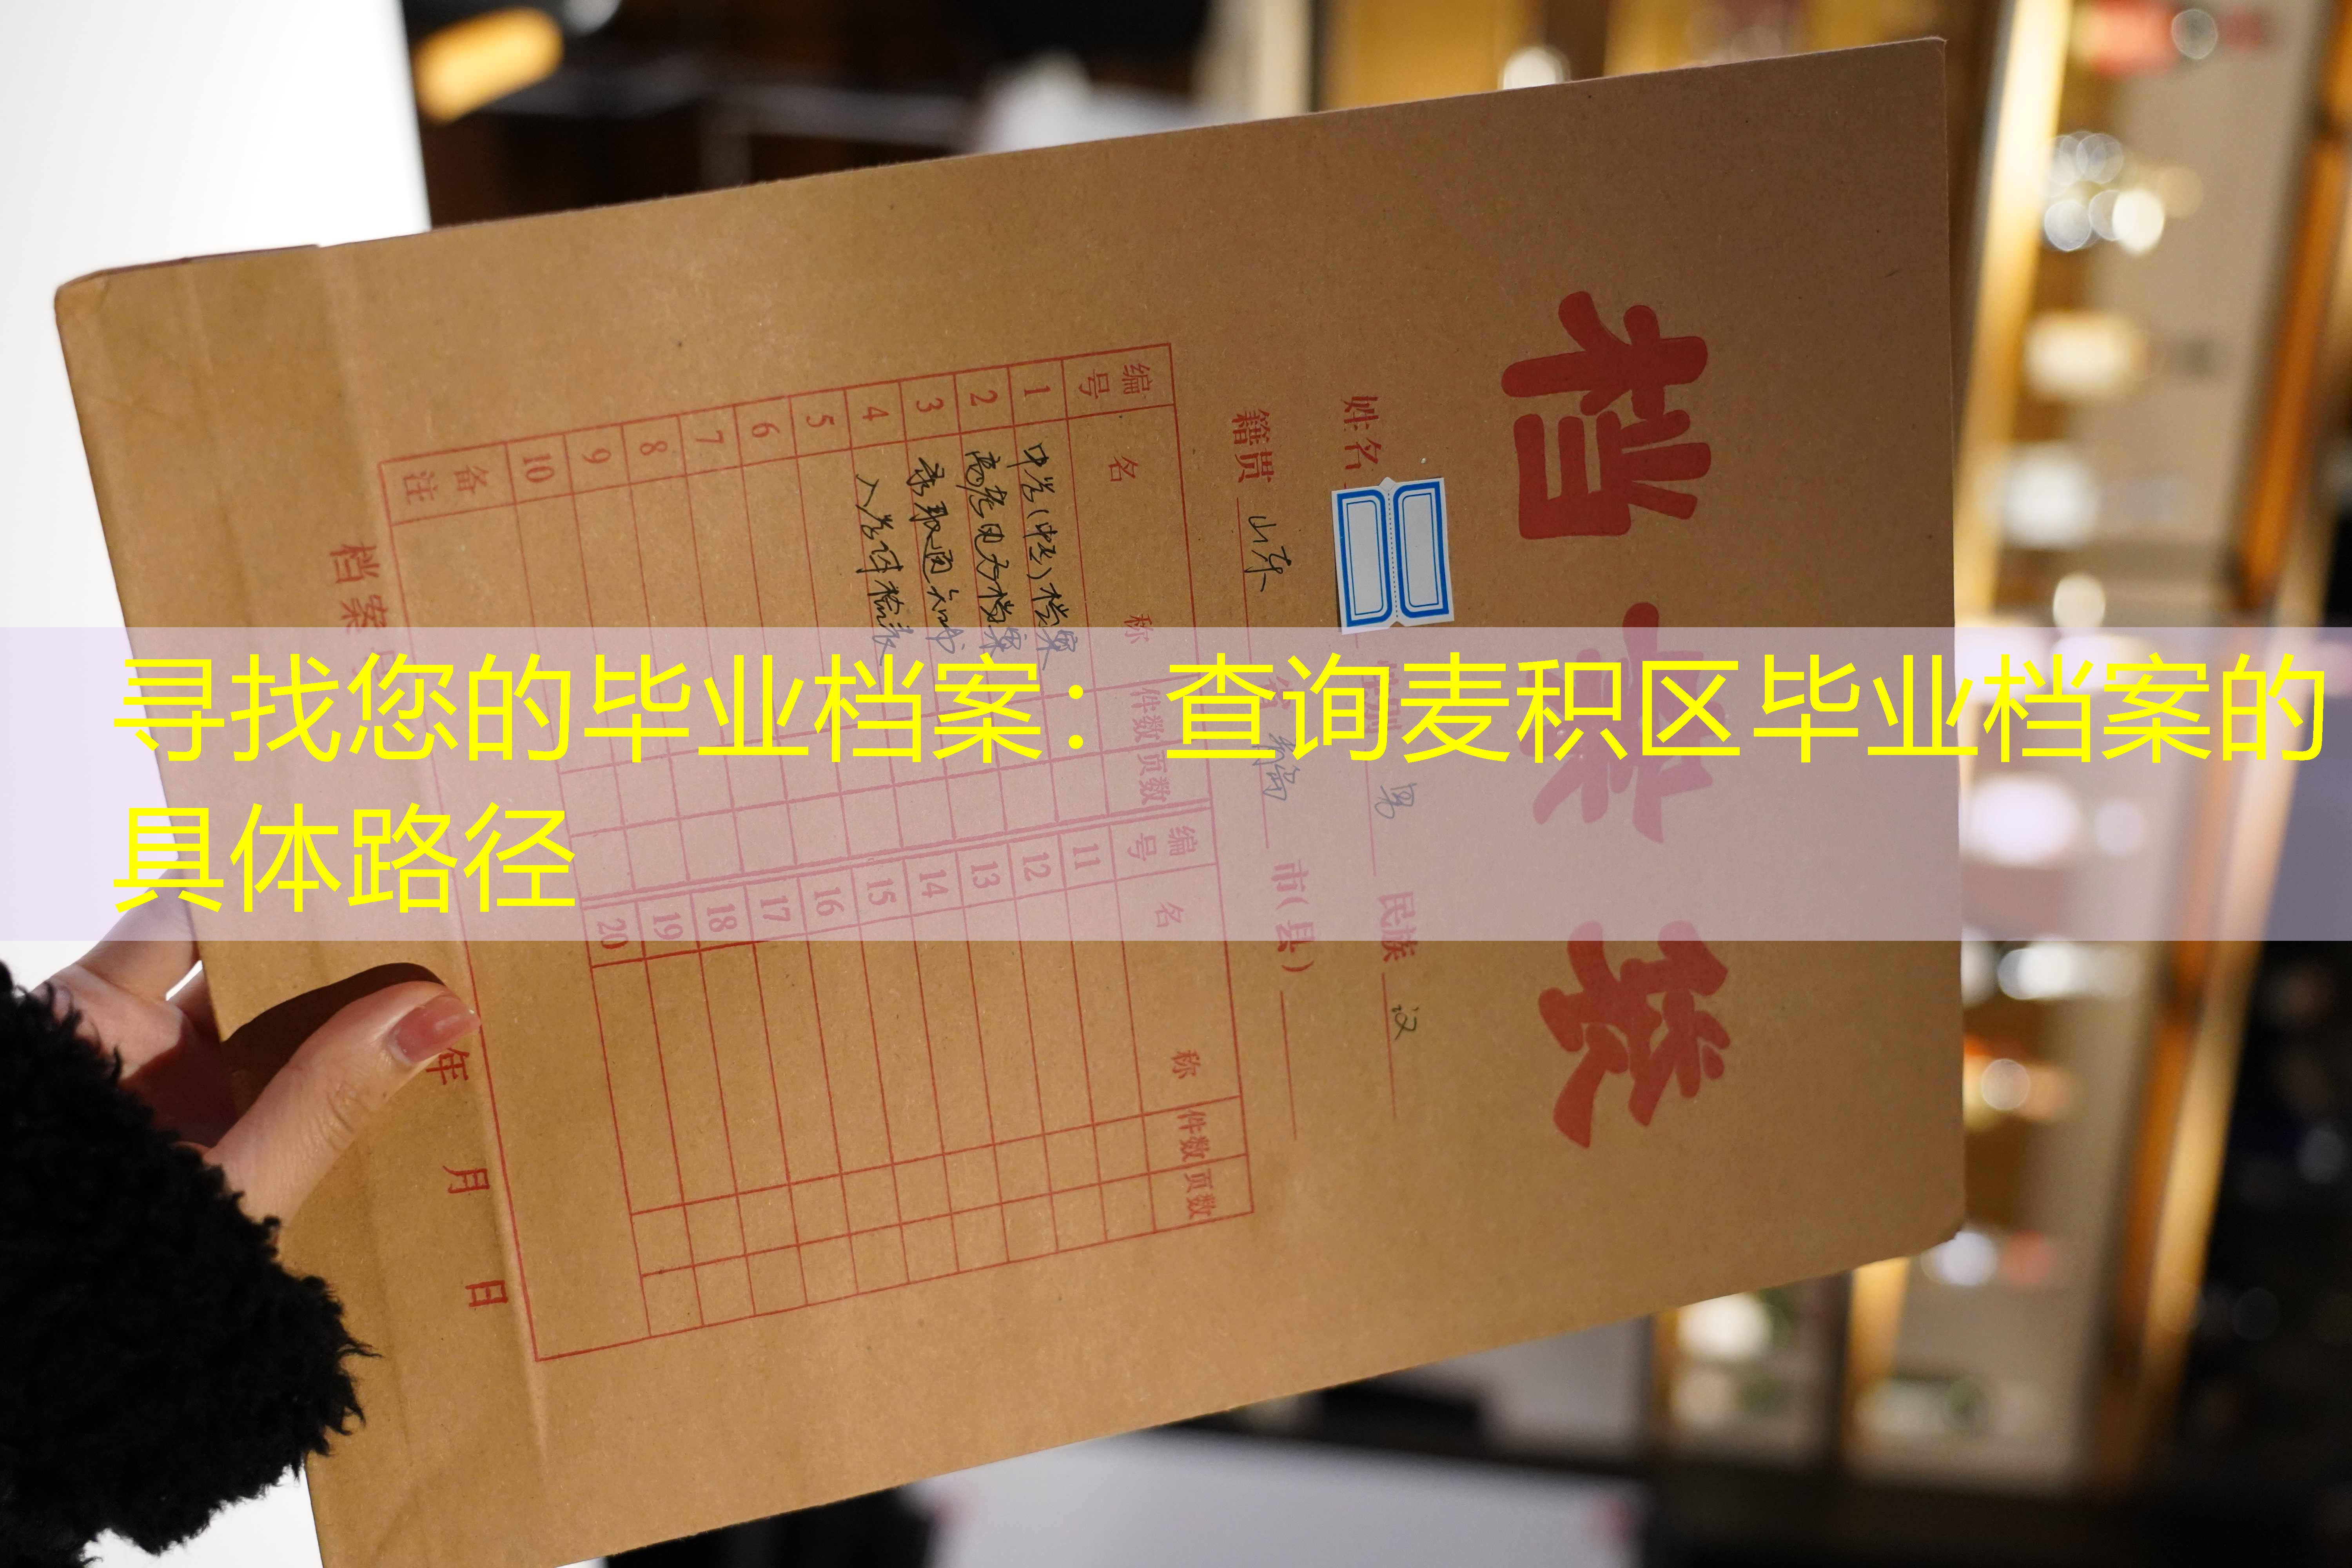 寻找您的毕业档案：查询麦积区毕业档案的
具体路径
档案袋
姓名 男 民族 汉
籍贯 山东 省 市(县)
编号 名称 件数 页数 编号 名称 件数 页数
1 中学(中专)档案 11
2 高考电子档案 12
3 录取通知书 13
4 入学体检表 14
5 15
6 16
7 17
8 18
9 19
10 20
备注
档案 年 月 日